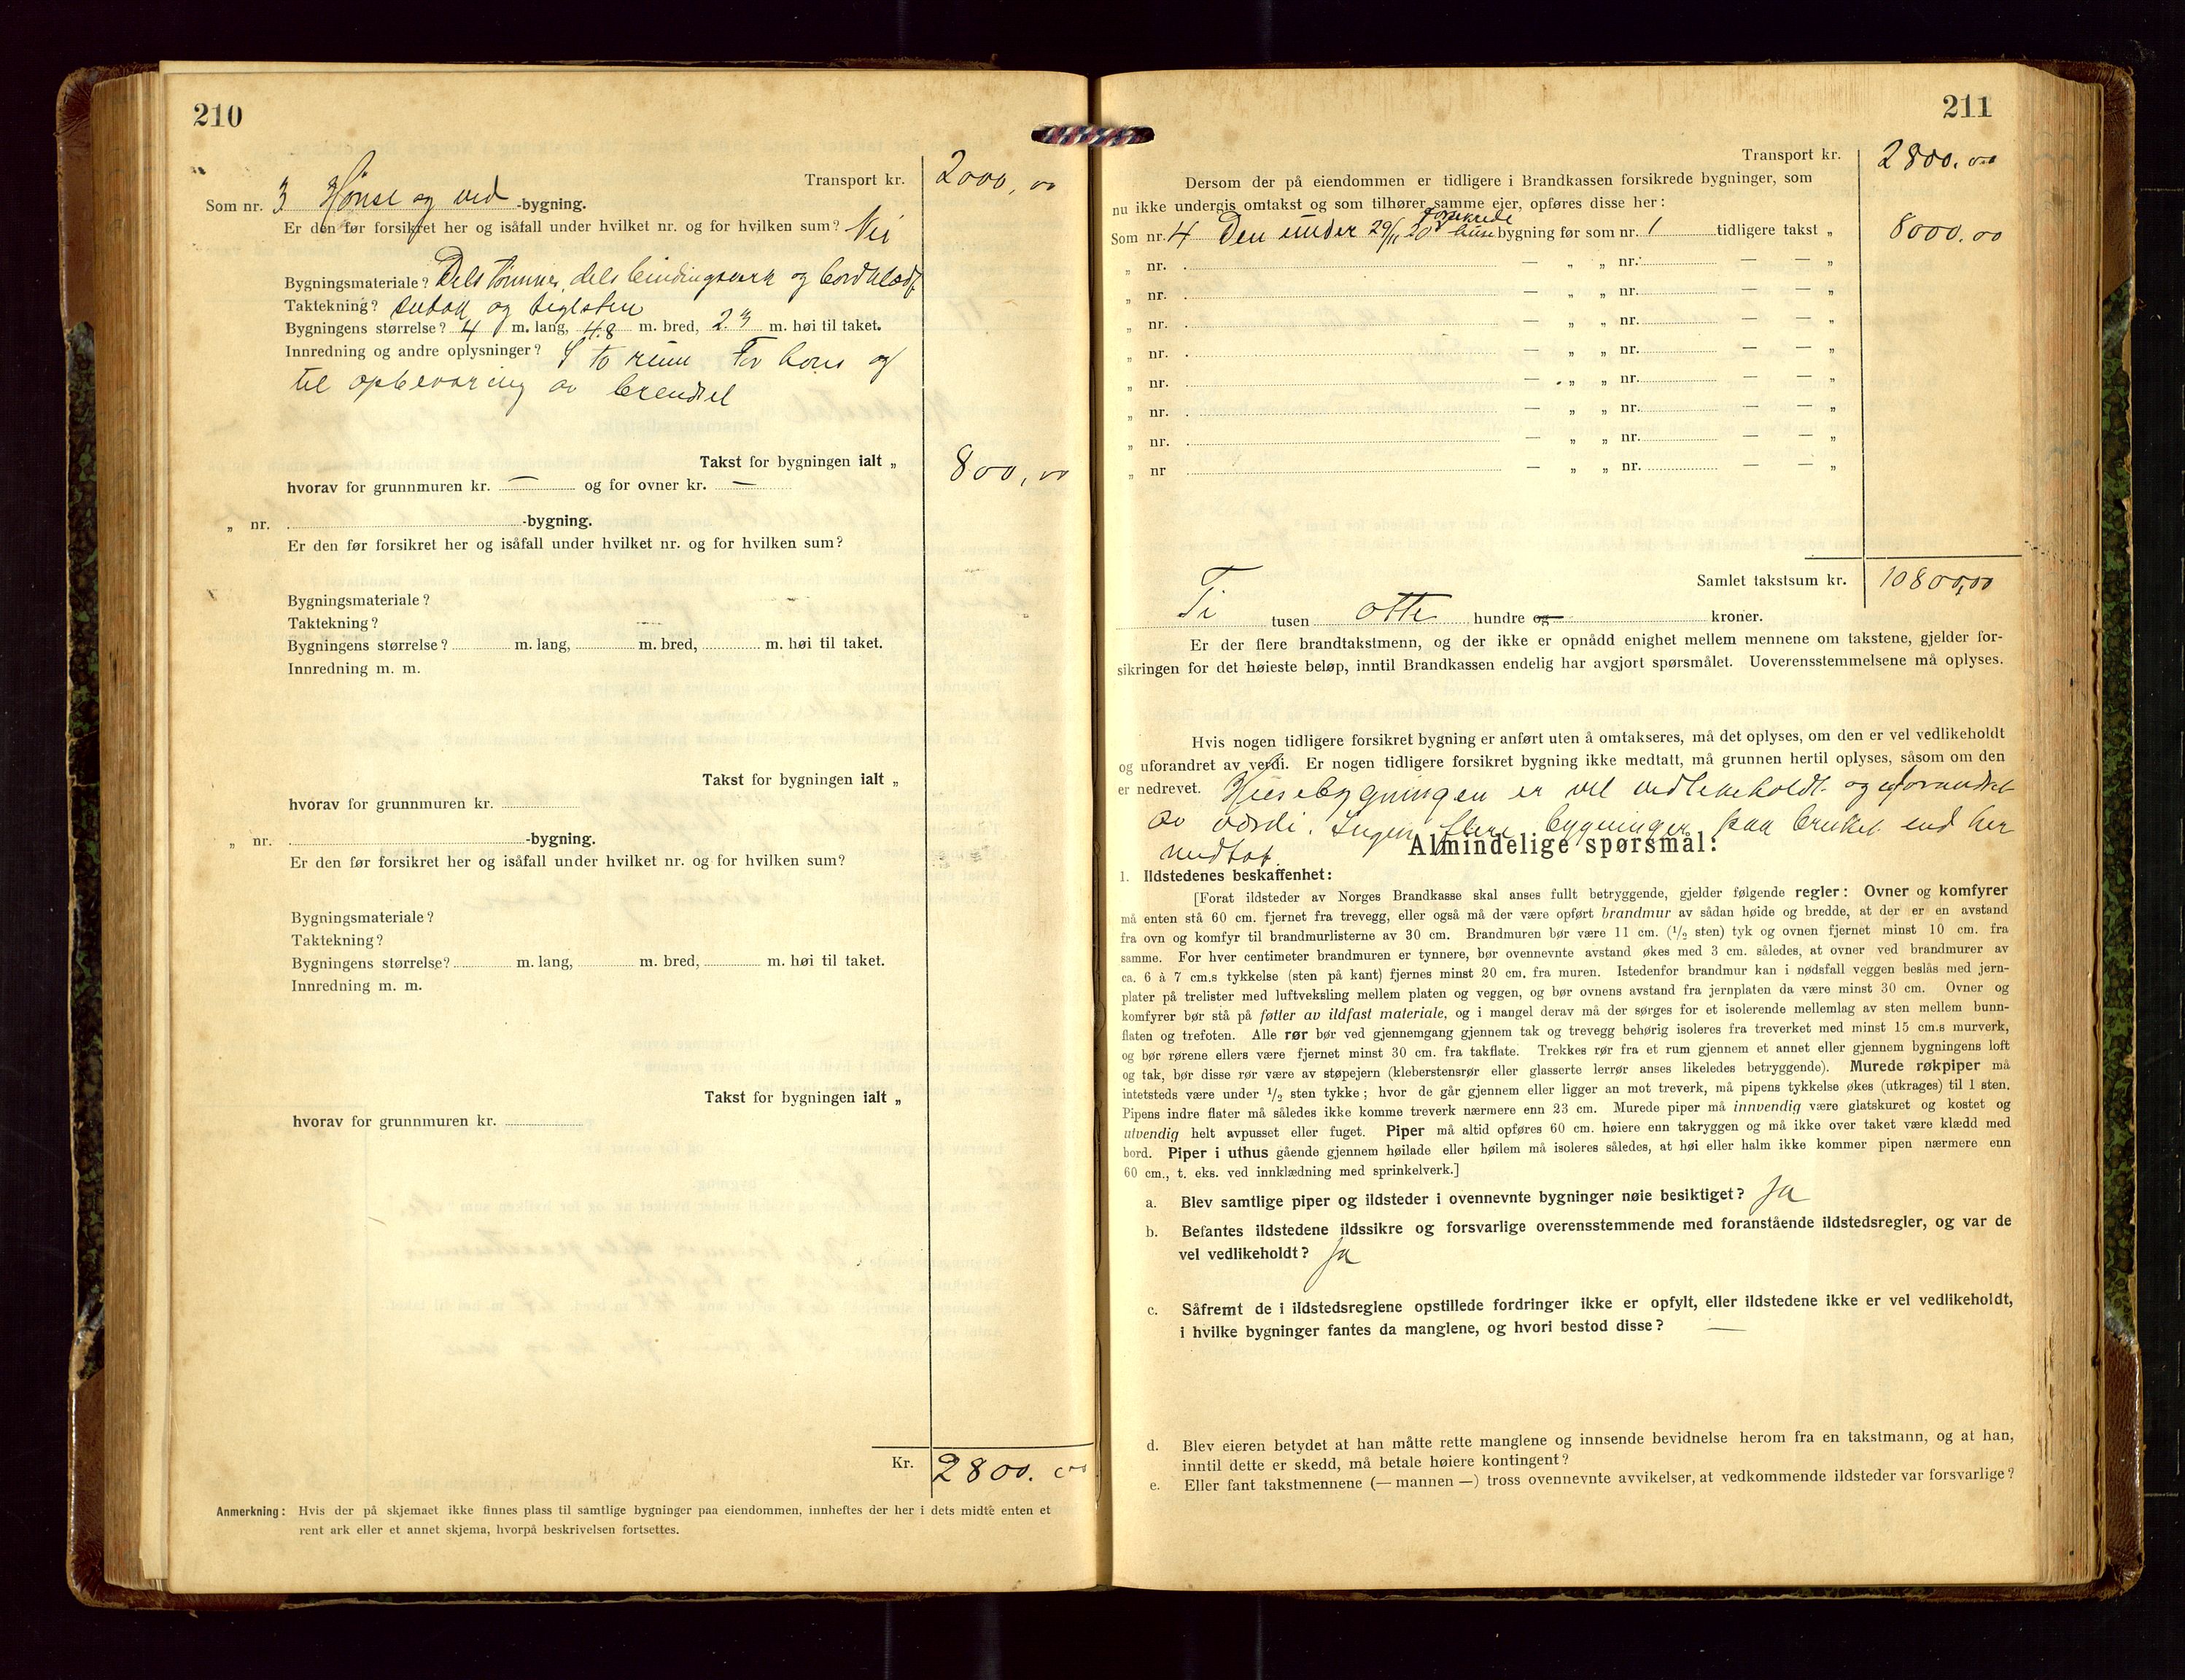 210
Transport kr. 2000,00
Som nr. 3 Hønse og ved -bygning.
Er den før forsikret her og isåfall under hvilket nr. og for hvilken sum? Nei
Bygningsmateriale? Dels tømmer, dels bindingsverk og bordklædt
Taktekning? og teglsten
Bygningens størrelse? 4 m. lang, 4.8 m. bred, 2.3 m. høi til taket.
Innredning og andre oplysninger? I to rum For høns og
til opbevaring av brendsel
Takst for bygningen ialt „ 800,00
hvorav for grunnmuren kr. — og for ovner kr. —
„ nr. -bygning.
Er den før forsikret her og isåfall under hvilket nr. og for hvilken sum?
Bygningsmateriale?
Taktekning?
Bygningens størrelse? m. lang, m. bred, m. høi til taket.
Innredning m. m.
Takst for bygningen ialt „
hvorav for grunnmuren kr.
„ nr. -bygning.
Er den før forsikret her og isåfall under hvilket nr. og for hvilken sum?
Bygningsmateriale?
Taktekning?
Bygningens størrelse? m. lang, m. bred, m. høi til taket.
Innredning m. m.
Takst for bygningen ialt „
hvorav for grunnmuren kr.
Kr. 2800.00
Anmerkning: Hvis der på skjemaet ikke finnes plass til samtlige bygninger paa eiendommen, innheftes der her i dets midte enten et
rent ark eller et annet skjema, hvorpå beskrivelsen fortsettes.
211
Transport kr. 2800.00
Dersom der på eiendommen er tidligere i Brandkassen forsikrede bygninger, som
nu ikke undergis omtakst og som tilhører samme ejer, opføres disse her:
forsikrede
Som nr. 4 Den under 29/11 20 huse bygning før som nr. 1 tidligere takst „ 8000.00
„ nr. — „ „ nr. — — „
„ nr. — „ „ nr. — — „
„ nr. — „ „ nr. — — „
„ nr. — „ „ nr. — — „
„ nr. — „ „ nr. — — „
„ nr. — „ „ nr. — — „
„ nr. — „ „ nr. — — „
„ nr — „ „ nr. — — „
Samlet takstsum kr. 10800,00
Ti tusen otte hundre og kroner.
Er der flere brandtakstmenn, og der ikke er opnådd enighet mellem mennene om takstene, gjelder for-
sikringen for det høieste beløp, inntil Brandkassen endelig har avgjort spørsmålet. Uoverensstemmelsene må oplyses.
Hvis nogen tidligere forsikret bygning er anført uten å omtakseres, må det oplyses, om den er vel vedlikeholdt
og uforandret av verdi. Er nogen tidligere forsikret bygning ikke medtatt, må grunnen hertil oplyses, såsom om den
er nedrevet. Husebygningen er vel vedlikeholdt og uforandret
av værdi. Ingen flere bygninger paa bruket end her
medtat.
Almindelige spørsmål:
1. Ildstedenes beskaffenhet:
[Forat ildsteder av Norges Brandkasse skal anses fullt betryggende, gjelder følgende regler: Ovner og komfyrer
må enten stå 60 cm. fjernet fra trevegg, eller også må der være opført brandmur av sådan høide og bredde, at der er en avstand
fra ovn og komfyr til brandmurlisterne av 30 cm. Brandmuren bør være 11 cm. (1/2 sten) tyk og ovnen fjernet minst 10 cm. fra
samme. For hver centimeter brandmuren er tynnere, bør ovennevnte avstand økes med 3 cm. således, at ovner ved brandmurer av
ca. 6 à 7 cm.s tykkelse (sten på kant) fjernes minst 20 cm. fra muren. Istedenfor brandmur kan i nødsfall veggen beslås med jern-
plater på trelister med luftveksling mellem platen og veggen, og bør ovnens avstand fra jernplaten da være minst 30 cm. Ovner og
komfyrer bør stå på føtter av ildfast materiale, og i mangel derav må der sørges for et isolerende mellemlag av sten mellem bunn-
flaten og trefoten. Alle rør bør ved gjennemgang gjennem tak og trevegg behørig isoleres fra treverket med minst 15 cm.s murverk,
og bør rørene ellers være fjernet minst 30 cm. fra takflate. Trekkes rør fra et rum gjennem et annet eller gjennem bygningens loft
og tak, bør disse rør være av støpejern (kleberstensrør eller glasserte lerrør anses likeledes betryggende). Murede røkpiper må
intetsteds være under 1/2 sten tykke; hvor de går gjennem eller ligger an mot treverk, må pipens tykkelse økes (utkrages) til 1 sten.
Pipens indre flater må således ikke komme treverk nærmere enn 23 cm. Murede piper må innvendig være glatskuret og kostet og
utvendig helt avpusset eller fuget. Piper må altid opføres 60 cm. høiere enn takryggen og må ikke over taket være klædd med
bord. Piper i uthus gående gjennem høilade eller høilem må isoleres således, at høi eller halm ikke kommer pipen nærmere enn
60 cm., t. eks. ved innklædning med sprinkelverk.]
a. Blev samtlige piper og ildsteder i ovennevnte bygninger nøie besiktiget? Ja
b. Befantes ildstedene ildssikre og forsvarlige overensstemmende med foranstående ildstedsregler, og var de
vel vedlikeholdt? Ja
c. Såfremt de i ildstedsreglene opstillede fordringer ikke er opfylt, eller ildstedene ikke er vel vedlikeholdt,
i hvilke bygninger fantes da manglene, og hvori bestod disse? —
d. Blev eieren betydet at han måtte rette manglene og innsende bevidnelse herom fra en takstmann, og at han,
inntil dette er skedd, må betale høiere kontingent?
e. Eller fant takstmennene (— mannen —) tross ovennevnte avvikelser, at vedkommende ildsteder var forsvarlige?